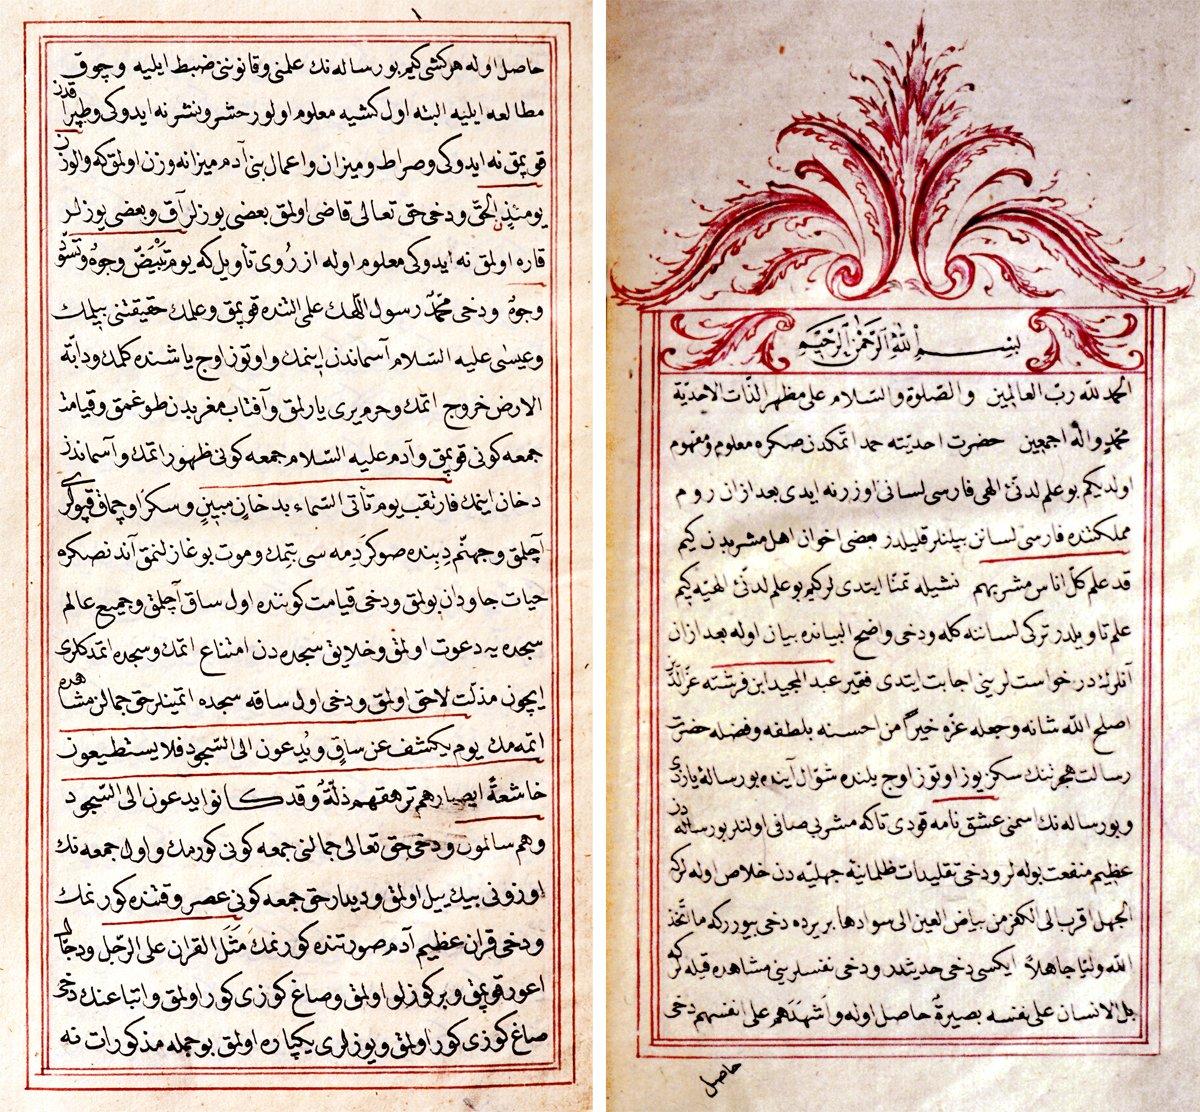 بسم الله الرحمن الرحيم
الحمد لله رب العالمين والصلوة والسلام على مظهر الذات الاحدية
محمد واله اجمعين حضرت احديته حمد اتمكدن صكره معلوم ومفهوم
اولديكم بو علم لدنئ الهى فارسى لسانى اوزرنه ايدى بعد ازان روم
مملكتنده فارسى لسانن بيلنلر قليلدر بعضى اخوان اهل مشربدن كيم
قد علم كل اناس مشربهم تمنا ايتدى لركيم بو علم لدنئ الهيه كيم
علم تاويلدر تركى لساننه كله ودخى واضح البيانده بيان اوله بعد ازان
آنلرك درخواست لرينى اجابت ايتدى فقير عبد المجيد ابن فرشته عزالدين
اصلح الله شانه وجعله غزه خيرا من احسنه بلطفه وفضله حضرت
رسالت هجرتنك سكز يوز اوتوز اوچ يلنده شوال آينده بو رساله يازدى
وبو رساله نك اسمنى عشق نامه قودى تاكه مشربى صافى اولنلر بو رساله دن
عظيم منفعت بوله لر ودخى تقليدات ظلمانية جهليه دن خلاص اوله لركه
الجهل اقرب الى الكفر من بياض العين الى سوادها بريرده دخى بيوررکه ما اتخذ
الله وليا جاهلاً ايكسى دخى حديثدر ودخى نفسلرينى مشاهده قيله لركه
بل الانسان على نفسه بصيرة حاصل اوله واشهدهم على انفسهم دخى
حاصل
حاصل اوله هر كشى كيم بو رساله نك علمنى وقانوننى ضبط ايليه وچوق
مطالعه ايليه البته اول كشيه معلوم اولور حشر ونشر نه ايدوكى وطپراقدن
قوپمق نه ايدوكى وصراط وميزان واعمال بنى آدم ميزانه وزن اولمق كه والوزن
يومئذ الحق ودخى حق تعالى قاضى اولمق بعضى يوزلر آق وبعضى يوزلر
قاره اولمق نه ايدوكى معلوم اوله از روى تأويل كه يوم تبيض وجوه وتسود
وجوه ودخى محمد رسول اللهك علمى التنده قوپمق وعلمك حقيقتنى بيلمك
وعيسى عليه السلام آسماندن اينمك واوتوز اوچ ياشنده كلمك ودابة
الارض خروج اتمك وحرم يرى يارلمق وآفتاب مغربدن طوغمق وقيامت
جمعه كونى قوپمق وآدم عليه السلام جمعه كونى ظهور اتمك وآسماندن
دخان اينمك فارتقب يوم تأتى السماء بدخان مبين وسكز اوچماق قپولرى
آچلمق وجهنم دبنده صوكردمه سى بتمك وموت بوغازلنمق آندنصكره
حيات جاودان بولمق ودخى قيامت كوننده اول ساق آچلمق وجميع عالم
سجده يه دعوت اولمق وخلايق سجده دن امتناع اتمك وسجده اتمدكلرى
ايچون مذلت لاحق اولمق ودخى اول ساقه سجده اتمينلر حق جمالن مشاهده
اتمه مك يوم يكشف عن ساق ويدعون الى السجود فلا يستطيعون
خاشعة ابصارهم ترهقهم ذلة وقد كانوا يدعون الى السجود
وهم سالمون ودخى حق تعالى جمالنى جمعه كونى كورمك واول جمعه نك
اوزونى بيك ييل اولمق وديدار حق جمعه كونى عصر وقتنده كورنمك
ودخى قران عظيم آدم صورتنده كورنمك مثل القران على الرجل ودجال
اعور قوپمق وبر كوزلو اولمق وصاغ كوزى كور اولمق واتباعنك دخى
صاغ كوزى كور اولمق ويوزلرى يكپاره اولمق بو جمله مذكورات نه